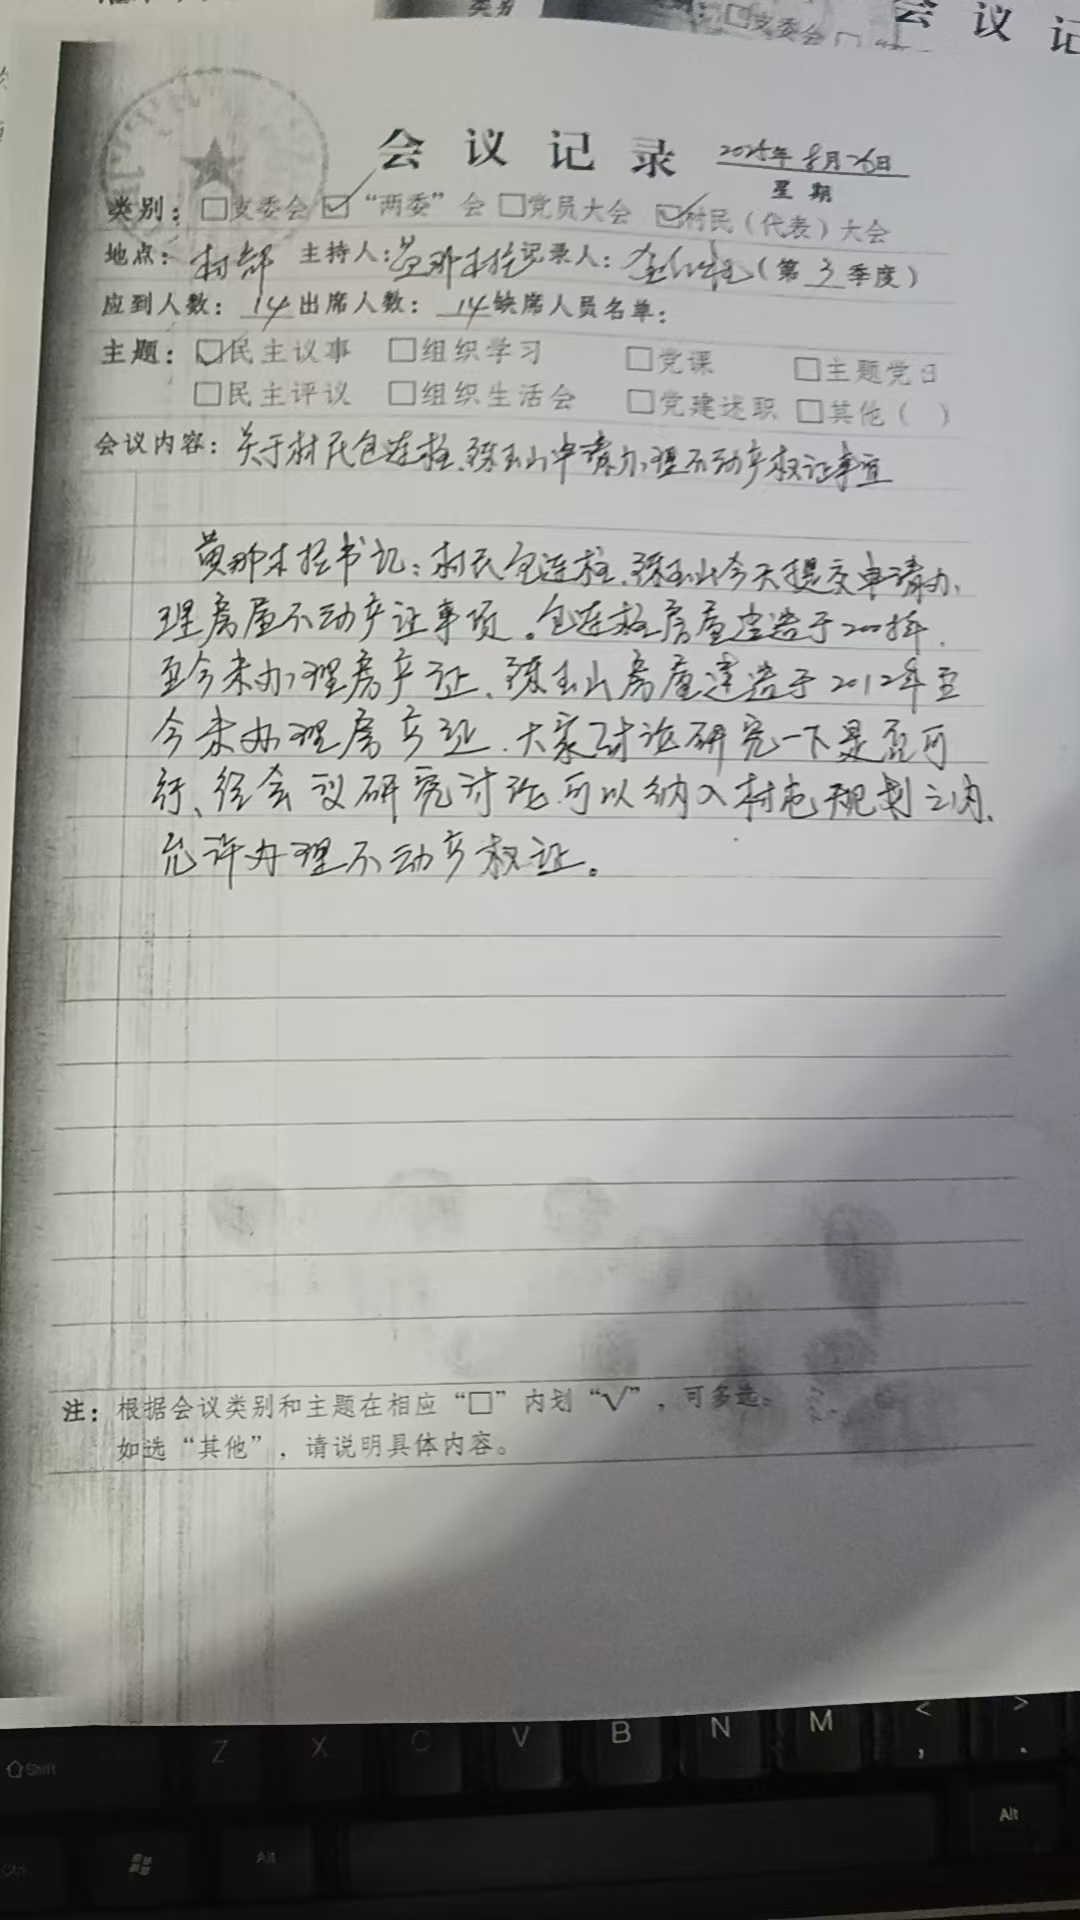 类别
□支委会
会 议 记
会 议 记 录 2025年8月26日
星 期
类别：□支委会 ☑“两委”会 □党员大会 ☑村民（代表）大会
地点：村部 主持人： 记录人： （第3季度）
应到人数：14 出席人数：14 缺席人员名单：
主题：☑民主议事 □组织学习 □党课 □主题党日
□民主评议 □组织生活会 □党建述职 □其他（ ）
会议内容：关于村民包连柱、玉山申请办理不动产权证事宜
黄那木拉书记：村民包连柱、玉山今天提交申请办
理房屋不动产证事项。包连柱房屋建造于
至今未办理房产证、玉山房屋建造于2012年至
今未办理房产证、大家讨论研究一下是否可
行、经会议研究讨论可以纳入村屯规划之内、
允许办理不动产权证。
注：根据会议类别和主题在相应“□”内划“√”，可多选。
如选“其他”，请说明具体内容。
Shift
Z X C V B N M < ,
> .
Ctrl
Alt
Alt